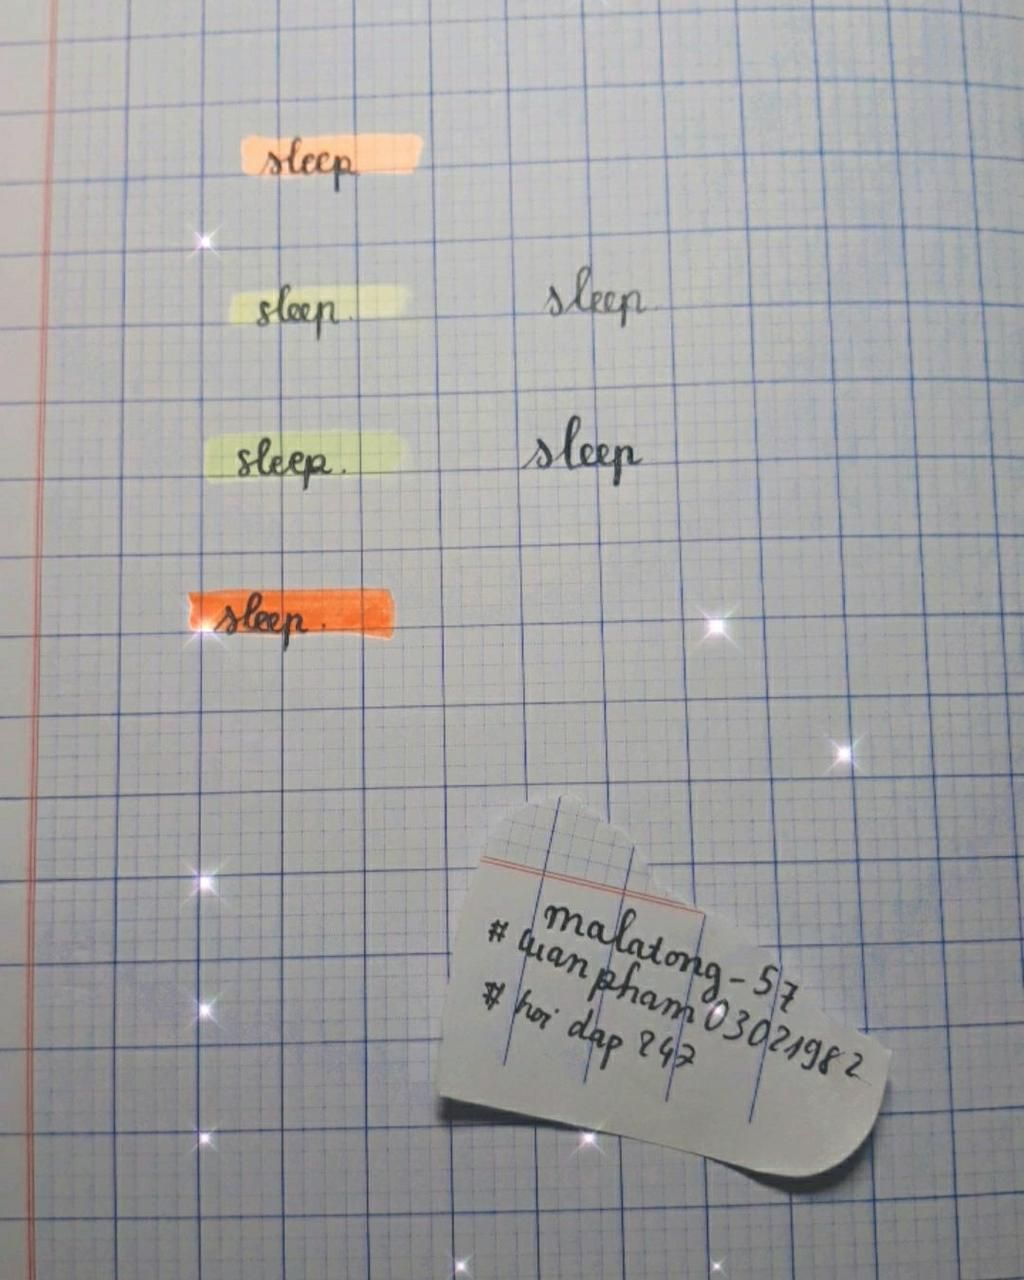 sleep
sleep. sleep.
sleep. sleep
sleep.
malatong - 57
# tuanpham 03021982
# hoi dap 247